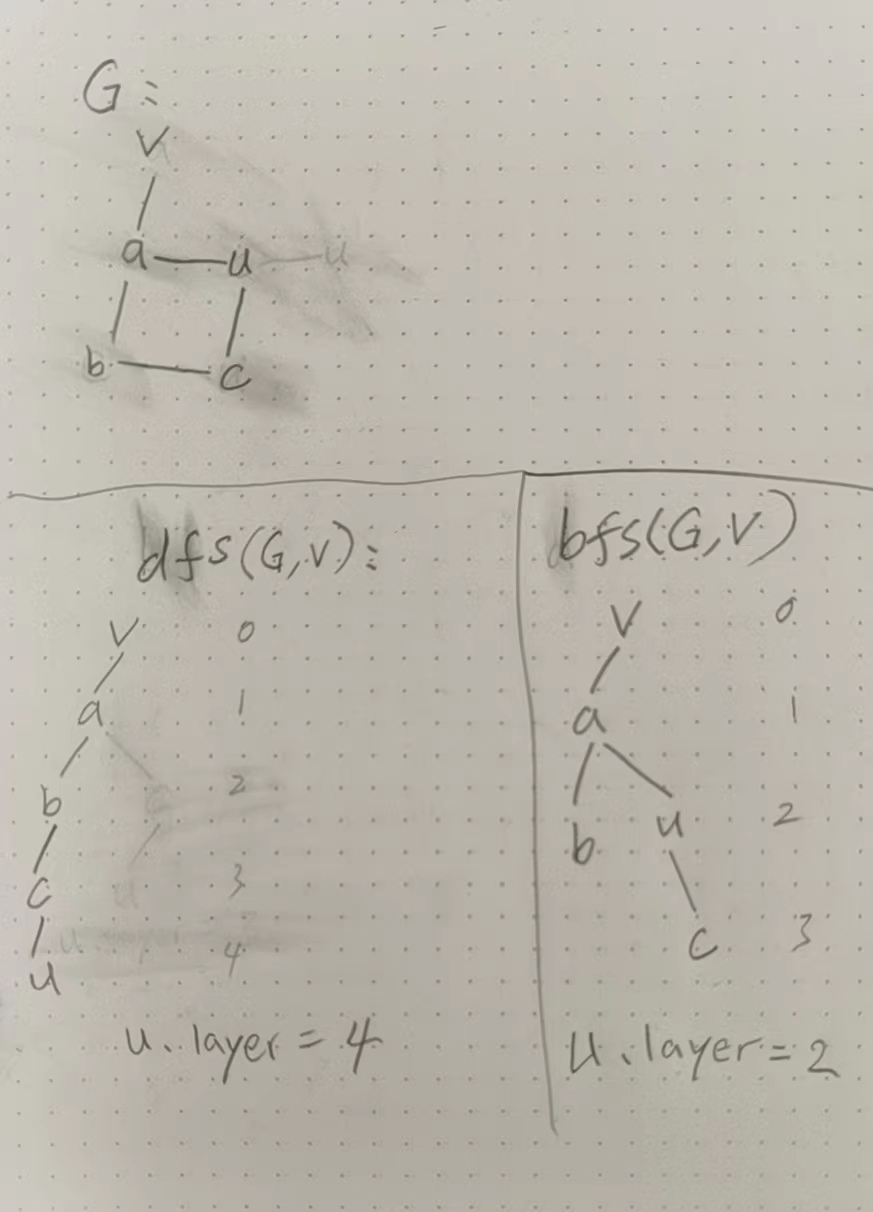 G:
V
a u u
b c
dfs(G,V):
V 0
a 1
b 2
c u 3
u 4
u.layer = 4
bfs(G,V)
V 0
a 1
b u 2
c 3
u.layer = 2